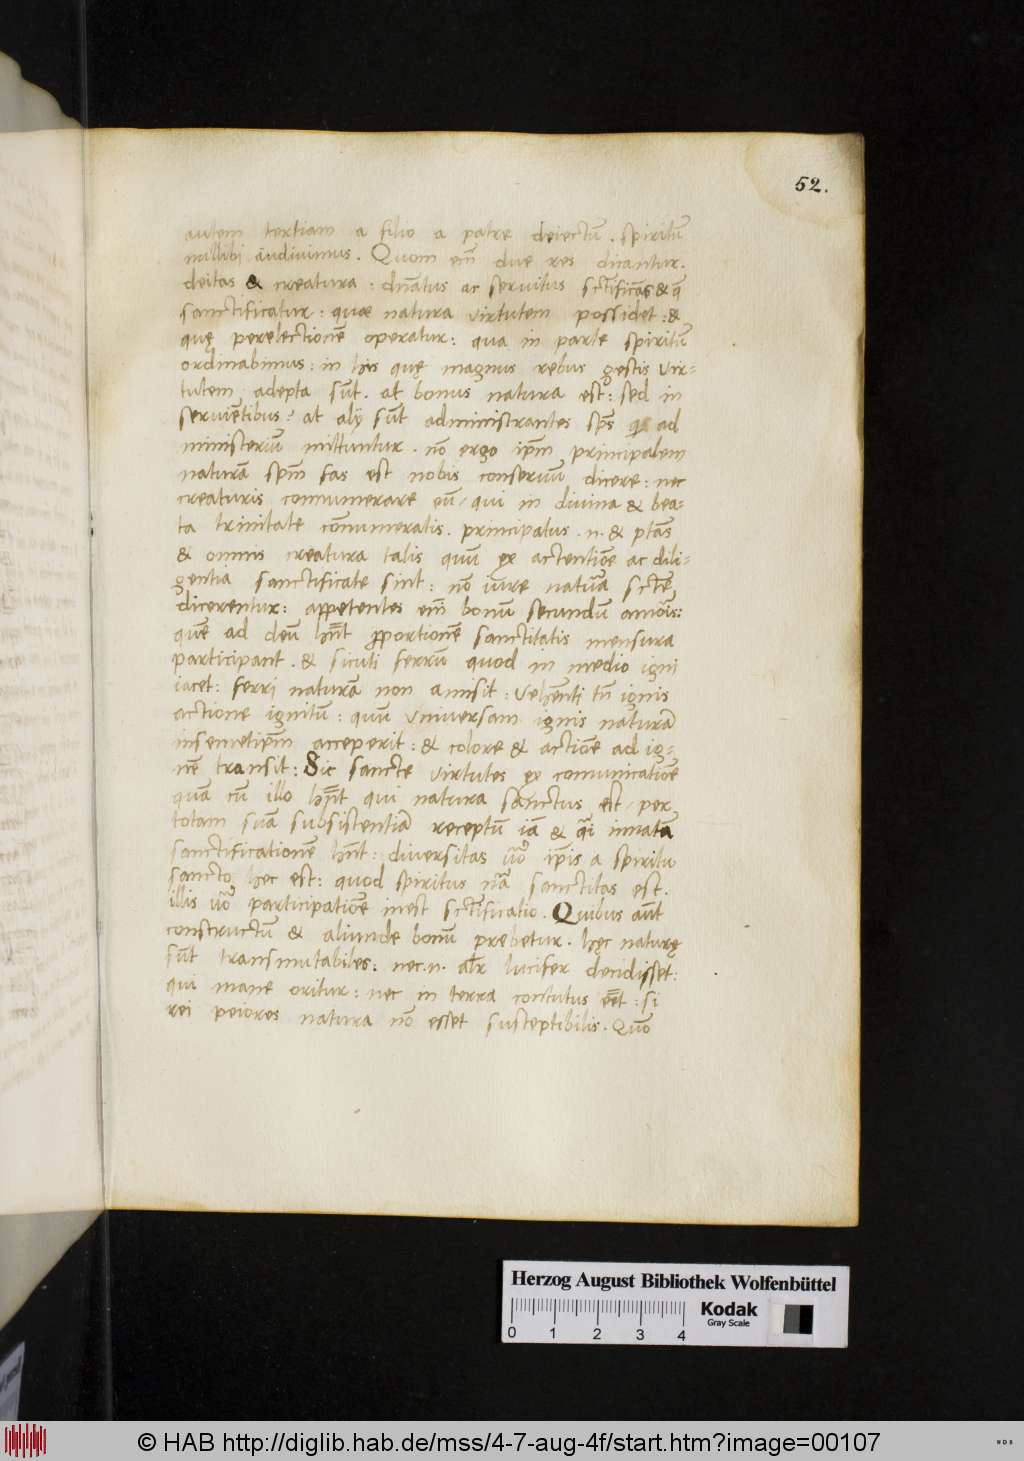 52.
autem tertiam a filio a patre deiectū. spiritū
nullibi audivimus. Quom em̄ due res dn̄antur.
deitas & creatura: dn̄atus ac servitus sctificās & q̄
sanctificatur: quae natura virtutem possidet: &
quę perelectionē operatur: qua in parte spiritū
ordinabimus: in his quę magnus rebus gestis vir-
tutem adepta sūt. at bonus natura est: sed in
serviētibus? at alij sūt administrantes sp̄s qui ad
ministeriū mittuntur. nō ergo ip̄m principalem
naturā sp̄m fas est nobis conservū dicere: nec
creaturis connumerare eū/ qui in divina & bea-
ta trinitate cōnumeratis. principatus .n. & ptās
& omnis creatura talis quū ex actentiōe ac dili-
gentia sanctificate sint: nō iure natura sctē
dicerentur: appetentes em̄ bonū secundū amōis:
quē ad deū hn̄t proportionē sanctitatis mensura
participant. & sicuti ferrū quod in medio igni
iacet: ferri naturā non amisit: vehēnti tn̄ ignis
actione ignitū: quū universam ignis naturā
insemetip̄m acceperit: & colore & actiōe ad ig-
nē transit: Sic sancte virtutes ex comunicatiōe
quā cū illo hn̄t qui natura sanctus est/ per
totam suā subsistentiā receptū iā & q̄si innatā
sanctificationē hn̄t: diversitas v̄o ip̄is a spiritu
sancto hec est: quod spiritus nr̄a sanctitas est.
illis v̄o participatiōe inest sctificatio. Quibus aūt
constructū & aliunde bonū prebetur. hęc naturę
sūt transmutabiles: nec .n. alr̄ lucifer decidisset:
qui mane oritur: nec in terra contutus eēt: si
rei peiores natura nō esset susceptibilis. Quō
Herzog August Bibliothek Wolfenbüttel
0 1 2 3 4
Kodak
Gray Scale
© HAB http://diglib.hab.de/mss/4-7-aug-4f/start.htm?image=00107